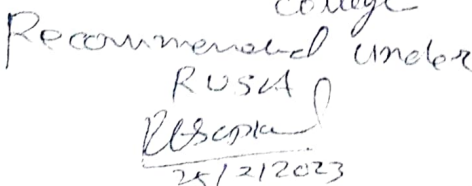 College
Recommended under
RUSA
25/2/2023